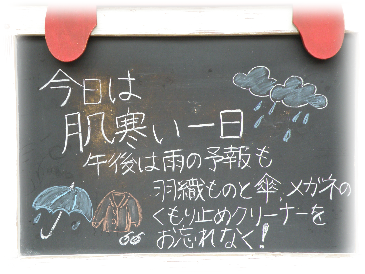 今日は
肌寒い一日
午後は雨の予報も
羽織ものと傘、メガネの
くもり止めクリーナーを
お忘れなく!